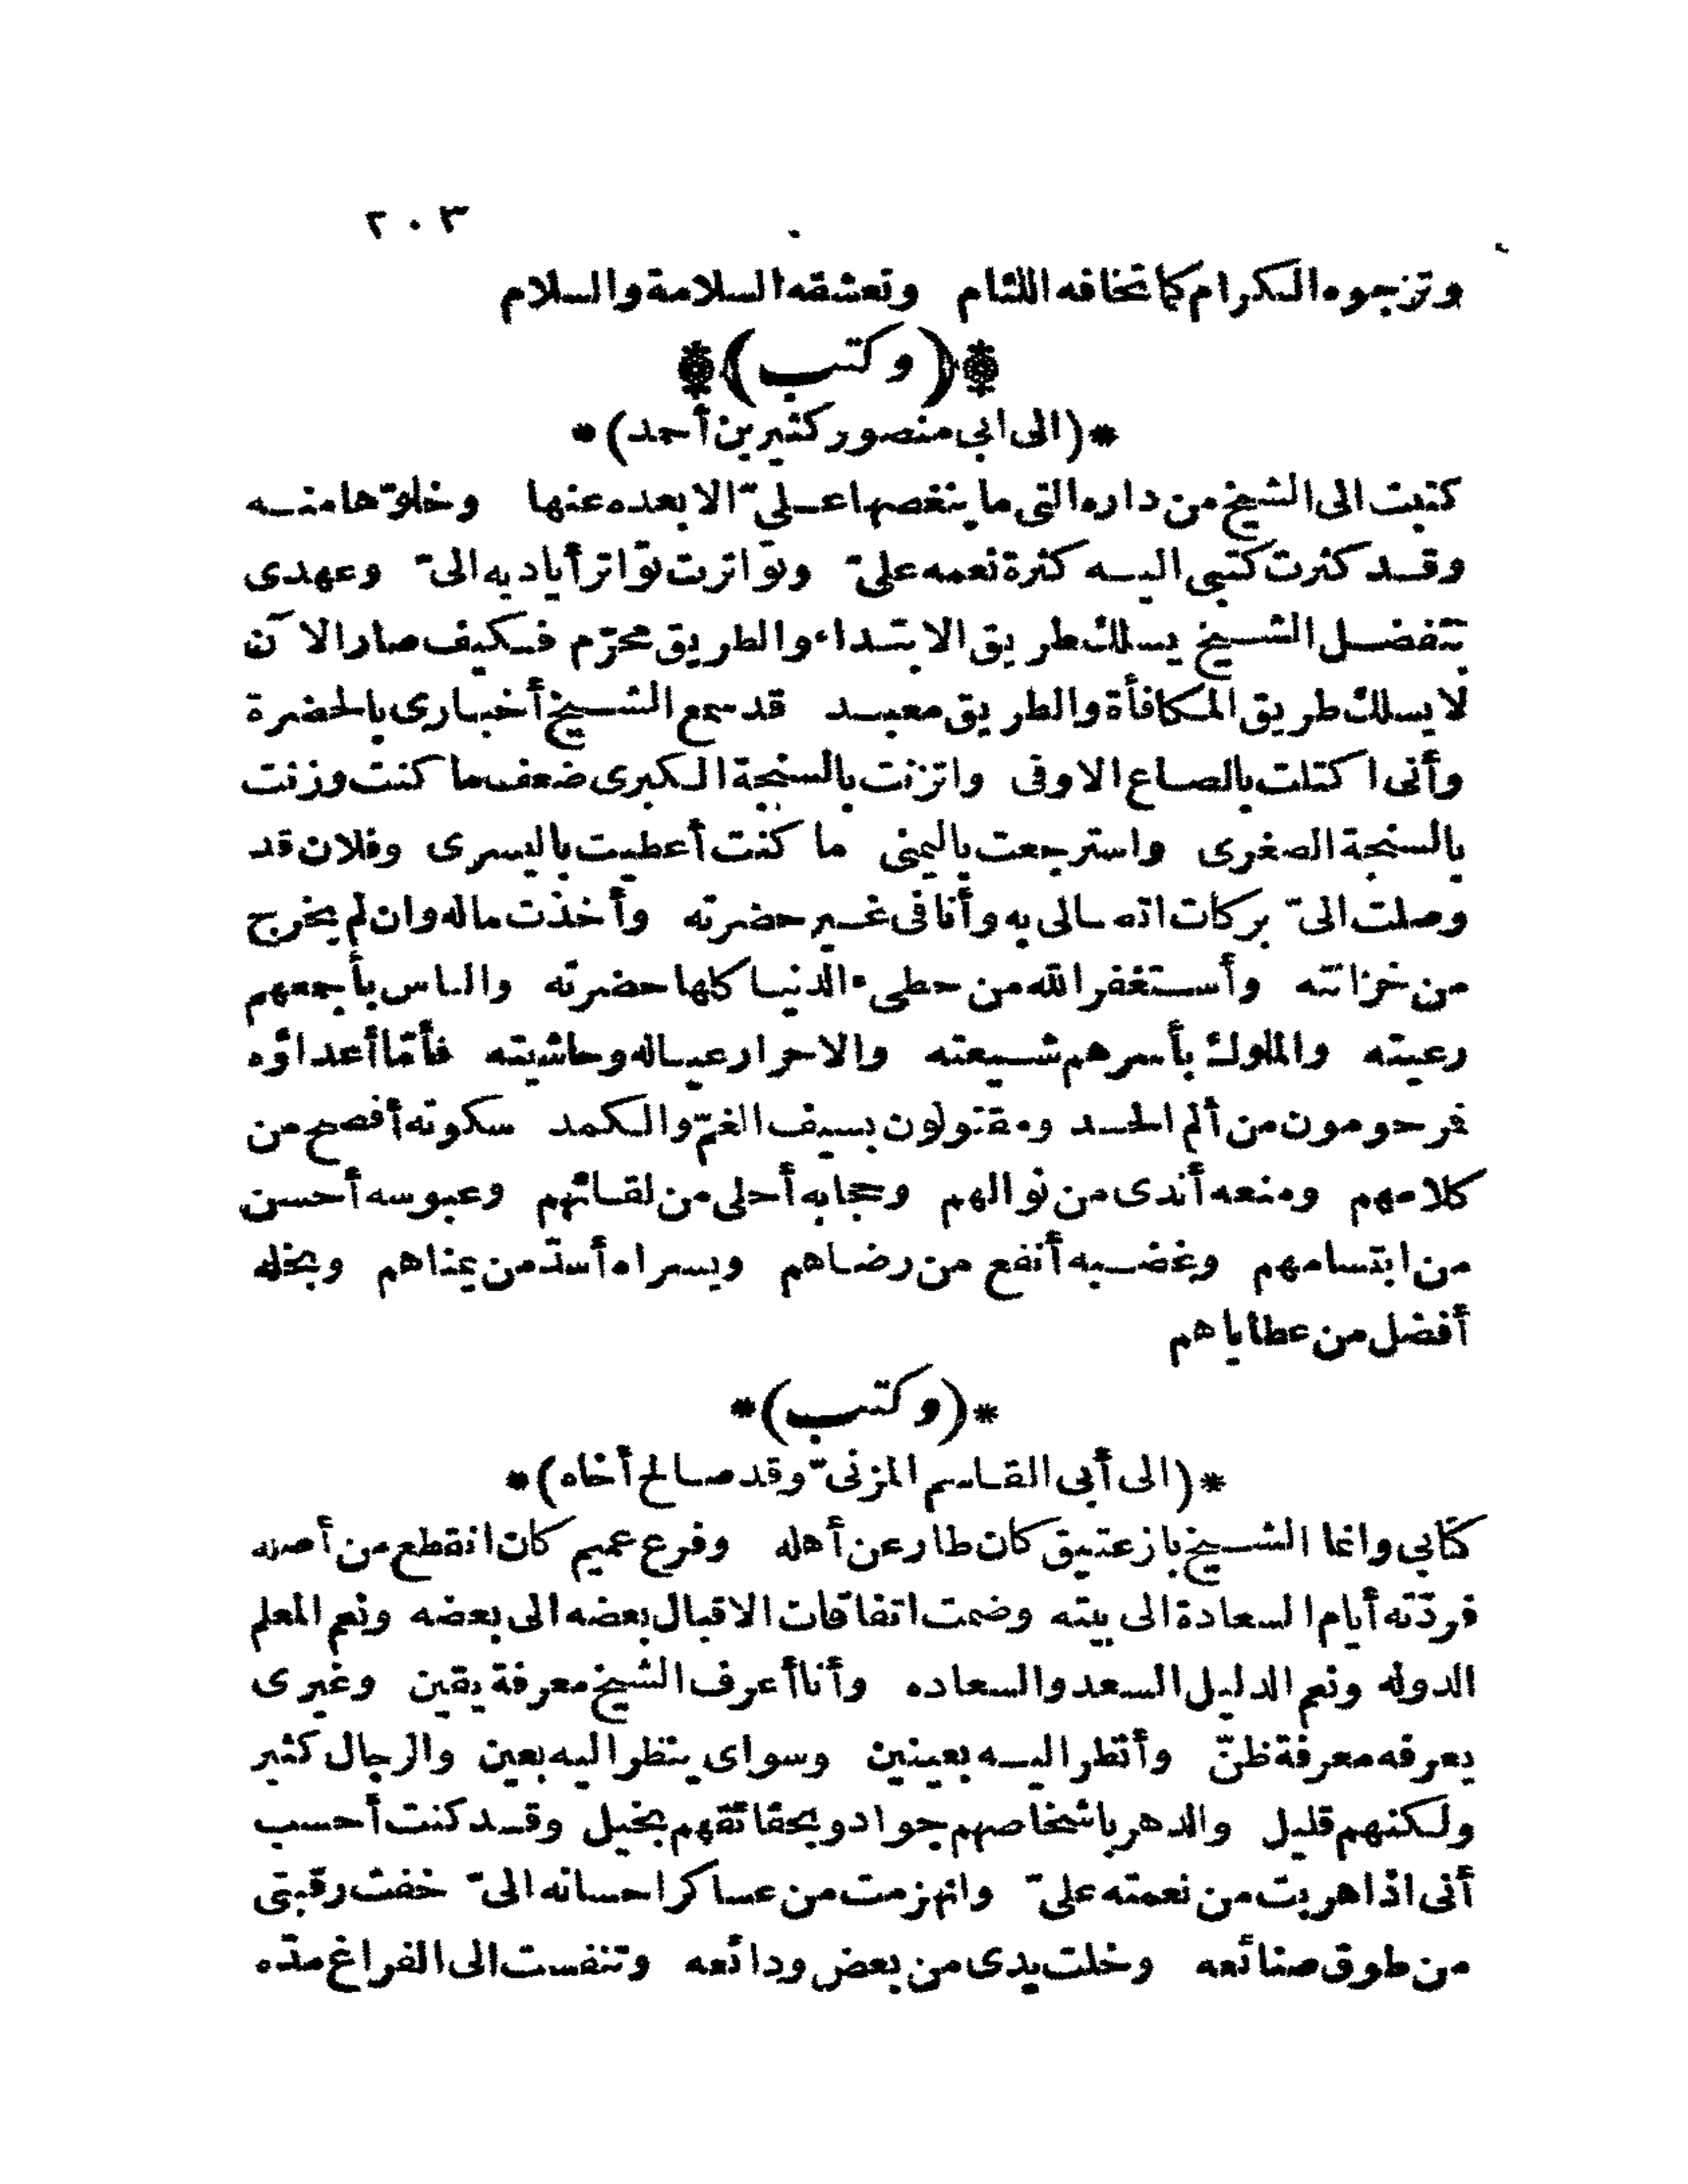 ٢٠٣
وترجوه الكرام كما تخافه اللئام وتعشقه السلامة والسلام
(وكتب)
*(الى ابي منصور كثير بن أحمد)*
كتبت الى الشيخ من داره التى ما ينغصها علي الا بعده عنها وخلوّها منه
وقد كثرت كتبي اليه كثرة نعمه علىّ وتواترت تواتر أياديه الىّ وعهدى
بتفضل الشيخ يسلك طريق الابتداء والطريق محرّم فكيف صار الآن
لا يسلك طريق المكافأة والطريق معبد قد سمع الشيخ أخبارى بالحضرة
وأنى اكتلت بالصاع الاوفى واتزنت بالسنجة الكبرى ضعف ما كنت وزنت
بالسنجة الصغرى واسترجعت باليمنى ما كنت أعطيت باليسرى وفلان قد
وصلت الىّ بركات اتصالى به وأنا فى غير حضرته وأخذت ماله وان لم يخرج
من خزانته وأستغفر الله من خطىء الدنيا كلها حضرته والناس بأجمعهم
رعيته والملوك بأسرهم شيعته والاحرار عياله وحاشيته فأمّا أعداؤه
فمرحومون من ألم الحسد ومقتولون بسيف الغمّ والكمد سكوته أفصح من
كلامهم ومنعه أندى من نوالهم وحجابه أحلى من لقائهم وعبوسه أحسن
من ابتسامهم وغضبه أنفع من رضاهم ويسراه أسدّ من يمناهم وبخله
أفضل من عطاياهم
*(وكتب)*
*(الى أبى القاسم المزنىّ وقد صالح أخاه)*
كتابي وانما الشيخ باز عتيق كان طار عن أهله وفرع عميم كان انقطع من أصله
فردّته أيام السعادة الى بيته وضمت اتفاقات الاقبال بعضه الى بعضه ونعم المعلم
الدوله ونعم الدليل السعد والسعاده وأنا أعرف الشيخ معرفة يقين وغيرى
يعرفه معرفة ظنّ وأنظر اليه بعينين وسواى ينظر اليه بعين والرجال كثير
ولكنهم قليل والدهر باشخاصهم جواد وبحقائقهم بخيل وقد كنت أحسب
أنى اذا هربت من نعمته علىّ وانهزمت من عساكر احسانه الىّ خفت رقبتى
من طوق صنائعه وخلت يدى من بعض ودائعه وتنفست الى الفراغ مدّه